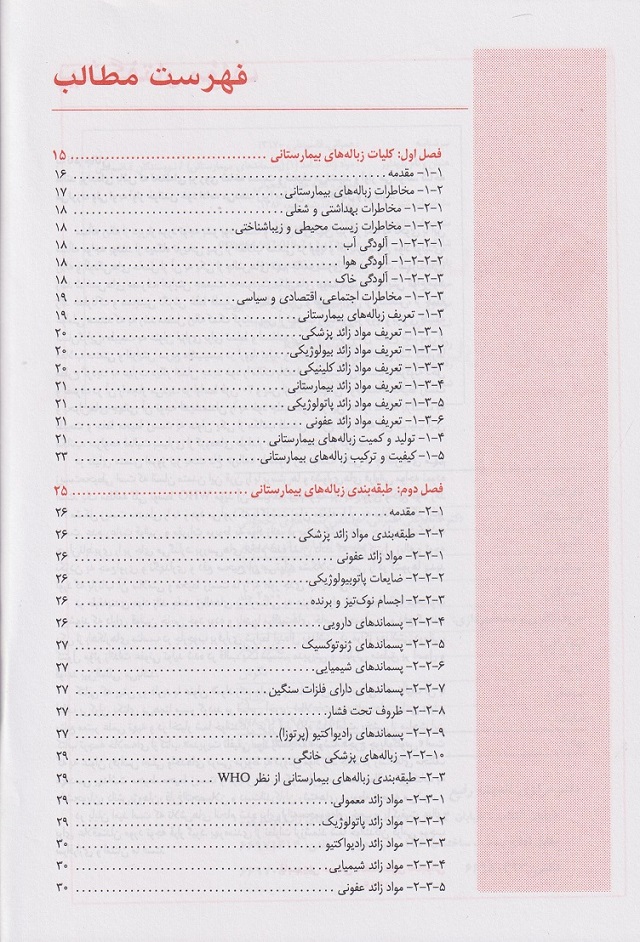 فهرست مطالب
فصل اول: کلیات زباله‌های بیمارستانی ........................................ ۱۵
۱-۱- مقدمه ........................................ ۱۶
۱-۲- مخاطرات زباله‌های بیمارستانی ........................................ ۱۷
۱-۲-۱- مخاطرات بهداشتی و شغلی ........................................ ۱۸
۱-۲-۲- مخاطرات زیست محیطی و زیباشناختی ........................................ ۱۸
۱-۲-۲-۱- آلودگی آب ........................................ ۱۸
۱-۲-۲-۲- آلودگی هوا ........................................ ۱۸
۱-۲-۲-۳- آلودگی خاک ........................................ ۱۸
۱-۲-۳- مخاطرات اجتماعی، اقتصادی و سیاسی ........................................ ۱۹
۱-۳- تعریف زباله‌های بیمارستانی ........................................ ۱۹
۱-۳-۱- تعریف مواد زائد پزشکی ........................................ ۲۰
۱-۳-۲- تعریف مواد زائد بیولوژیکی ........................................ ۲۰
۱-۳-۳- تعریف مواد زائد کلینیکی ........................................ ۲۰
۱-۳-۴- تعریف مواد زائد بیمارستانی ........................................ ۲۱
۱-۳-۵- تعریف مواد زائد پاتولوژیکی ........................................ ۲۱
۱-۳-۶- تعریف مواد زائد عفونی ........................................ ۲۱
۱-۴- تولید و کمیت زباله‌های بیمارستانی ........................................ ۲۱
۱-۵- کیفیت و ترکیب زباله‌های بیمارستانی ........................................ ۲۳
فصل دوم: طبقه‌بندی زباله‌های بیمارستانی ........................................ ۲۵
۲-۱- مقدمه ........................................ ۲۶
۲-۲- طبقه‌بندی مواد زائد پزشکی ........................................ ۲۶
۲-۲-۱- مواد زائد عفونی ........................................ ۲۶
۲-۲-۲- ضایعات پاتوبیولوژیکی ........................................ ۲۶
۲-۲-۳- اجسام نوک‌تیز و برنده ........................................ ۲۶
۲-۲-۴- پسماندهای دارویی ........................................ ۲۶
۲-۲-۵- پسماندهای ژنوتوکسیک ........................................ ۲۷
۲-۲-۶- پسماندهای شیمیایی ........................................ ۲۷
۲-۲-۷- پسماندهای دارای فلزات سنگین ........................................ ۲۷
۲-۲-۸- ظروف تحت فشار ........................................ ۲۷
۲-۲-۹- پسماندهای رادیواکتیو (پرتوزا) ........................................ ۲۷
۲-۲-۱۰- زباله‌های پزشکی خانگی ........................................ ۲۹
۲-۳- طبقه‌بندی زباله‌های بیمارستانی از نظر WHO ........................................ ۲۹
۲-۳-۱- مواد زائد معمولی ........................................ ۲۹
۲-۳-۲- مواد زائد پاتولوژیک ........................................ ۲۹
۲-۳-۳- مواد زائد رادیواکتیو ........................................ ۳۰
۲-۳-۴- مواد زائد شیمیایی ........................................ ۳۰
۲-۳-۵- مواد زائد عفونی ........................................ ۳۰